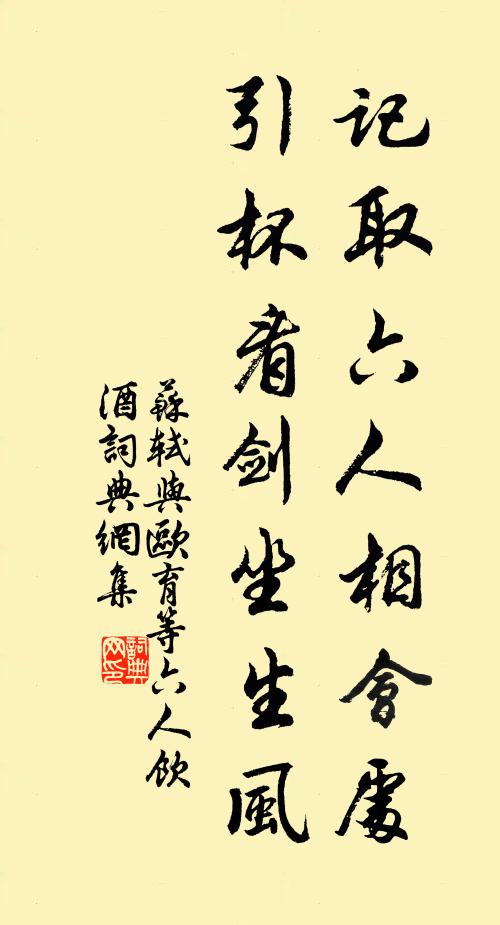 記取六人相會處
引杯看劍坐生風
蘇軾與歐育等六人飲
酒詞典網集
詞典
网印